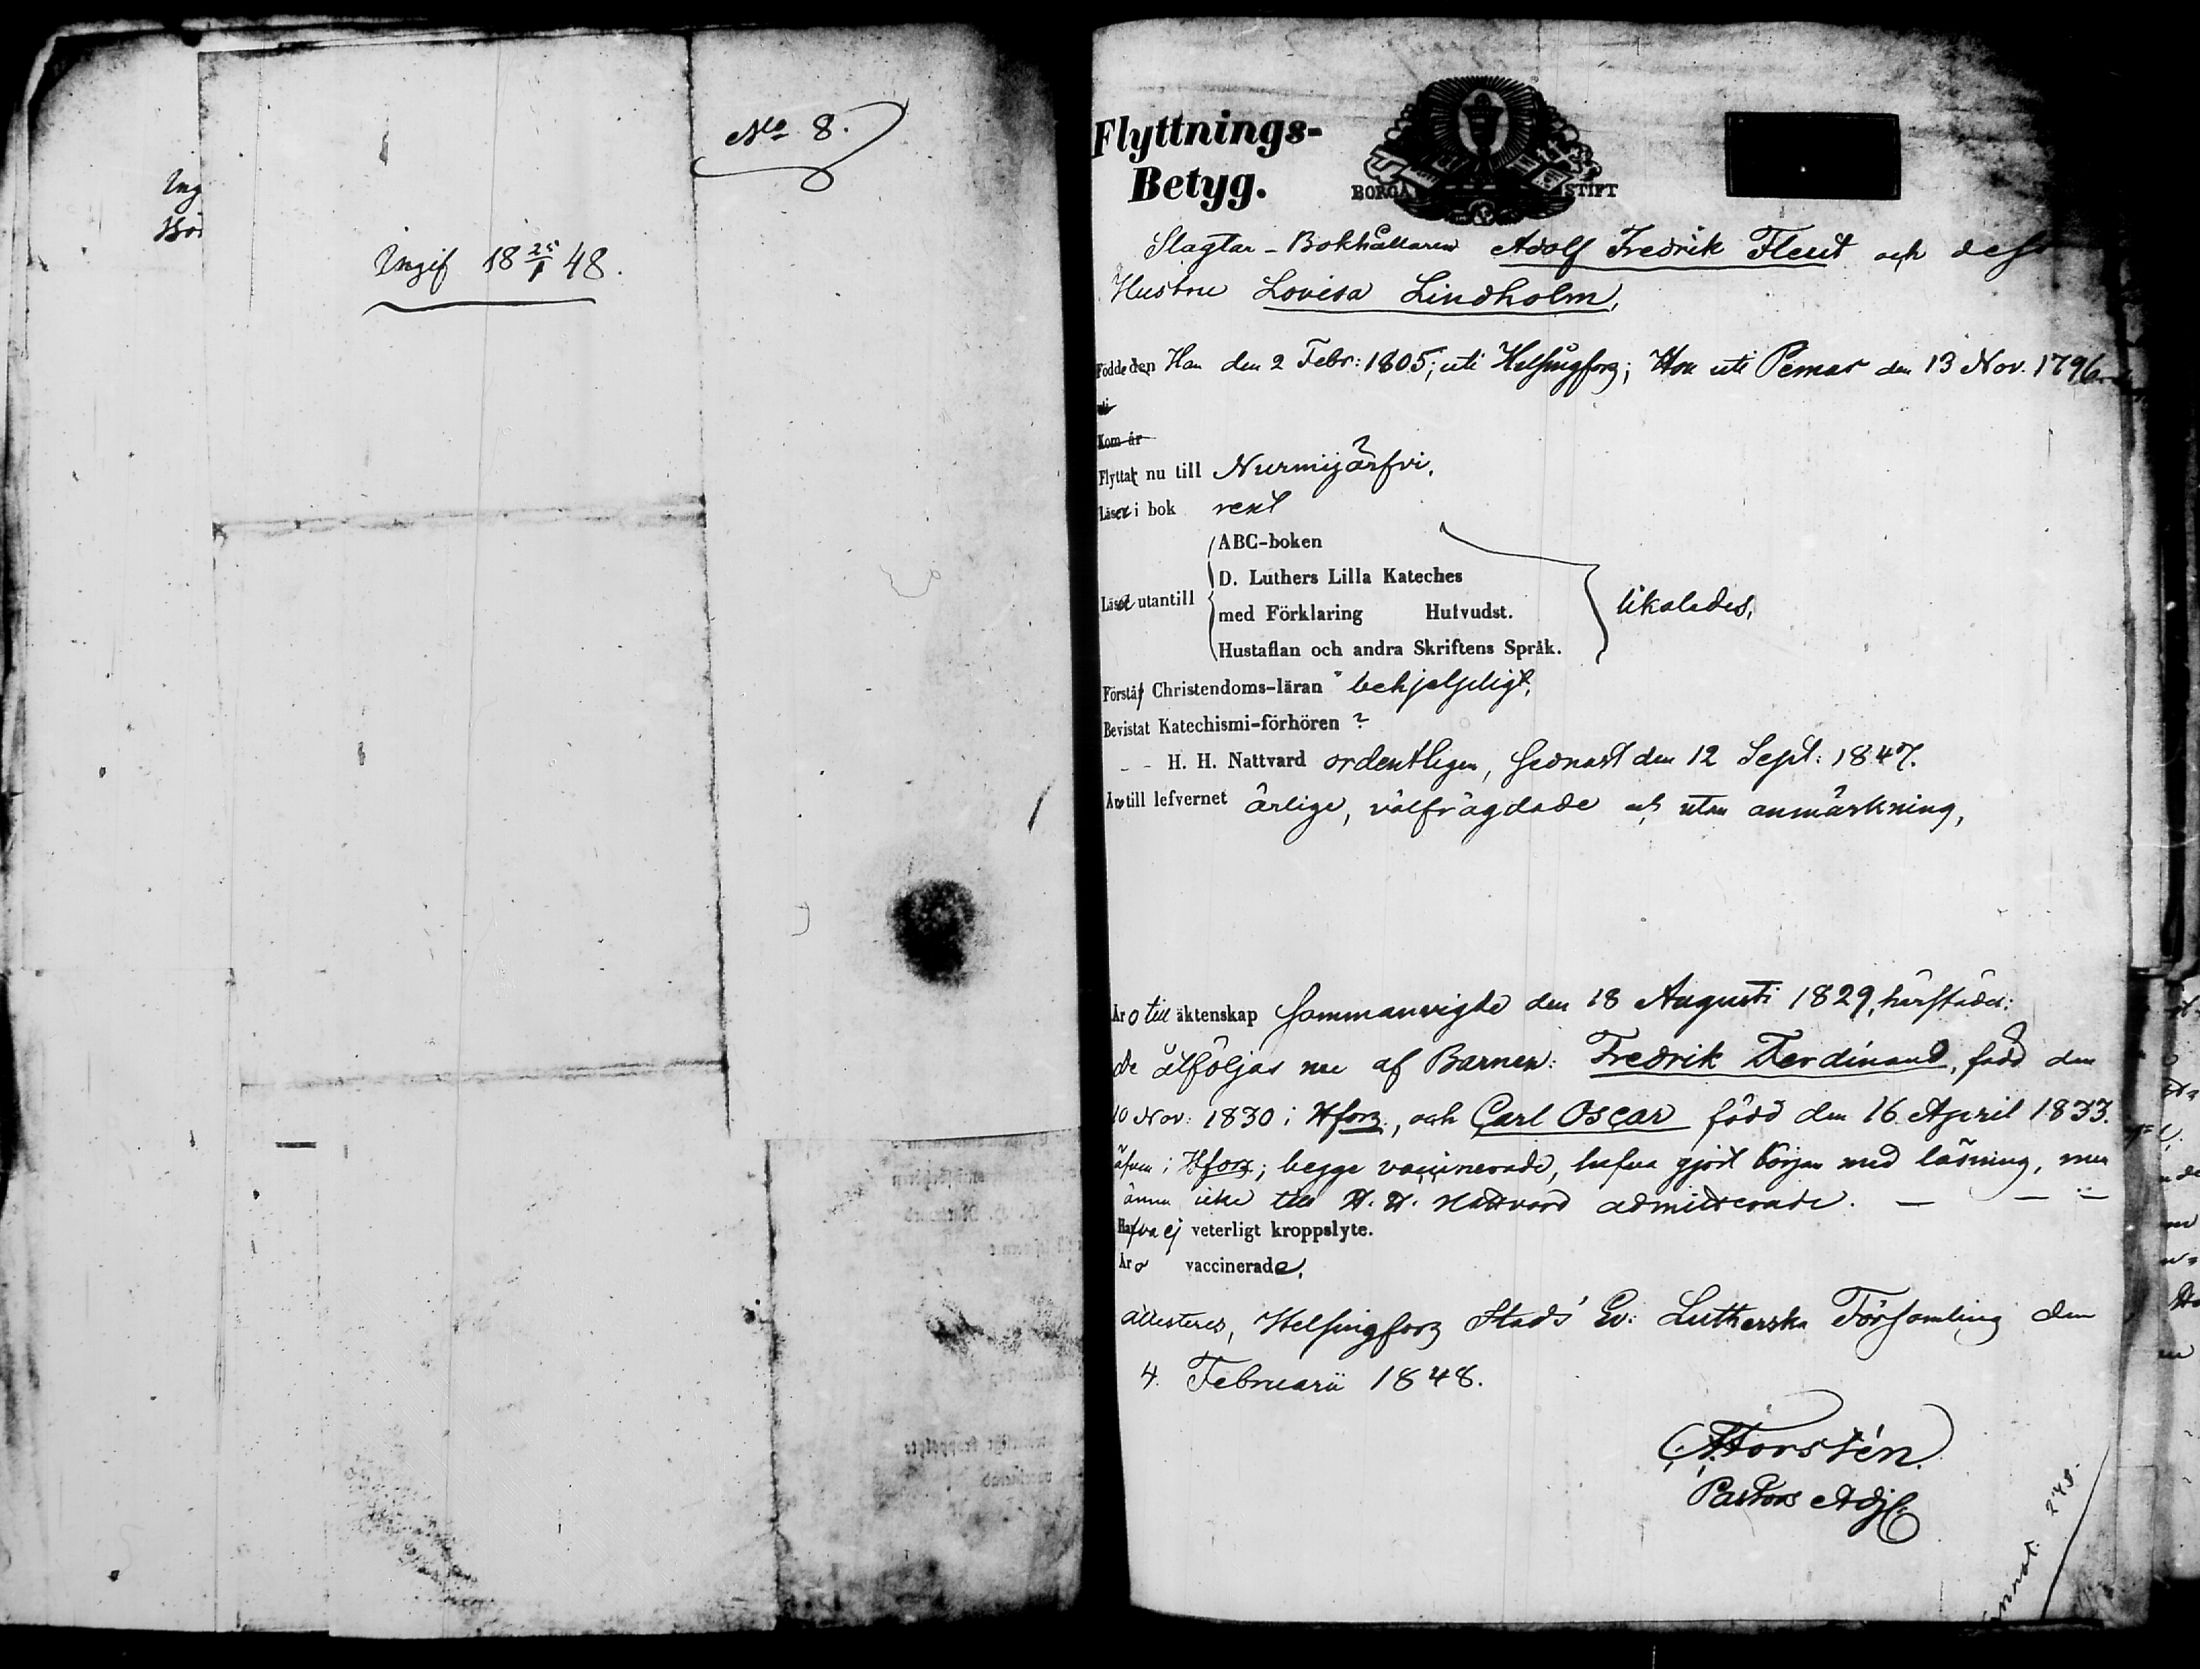 No 8.
Ing
Ingif 18 25/1 48.
Flyttnings-
Betyg.
BORGÅ STIFT
Slagtar-Bokhållaren Adolf Fredrik Fleut och dess
Hustru Lovisa Lindholm,
Födde den Han den 2 Febr: 1805; uti Helsingfors; Hon uti Pemar den 13 Nov. 1796.
uti
Kom år
Flytta nu till Nurmijärfvi.
Läser i bok rent
ABC-boken
D. Luthers Lilla Kateches
Läsa utantill
med Förklaring Hufvudst.
likaledes,
Hustaflan och andra Skriftens Språk.
Förstå Christendoms-läran behjelpligt,
Bevistat Katechismi-förhören ?
- - H. H. Nattvard ordentligen, sednast den 12 Sept: 1847.
Äro till lefvernet ärlige, välfrägdade och utan anmärkning,
Äro till äktenskap sammanvigde den 18 Augusti 1829, härstädes:
de åtföljas nu af Barnen: Fredrik Ferdinand, född den
10 Nov: 1830 i Hfors, och Carl Oscar född den 16 April 1833.
äfven i Hfors; begge vaccinerade, hafva gjort början med läsning, men
ännu icke till H. H. Nattvard admitterade.
Hafva ej veterligt kroppslyte.
Äro vaccinerade.
attesteres, Helsingfors Stads Ev: Lutherska Församling den
4. Februarii 1848.
Forstén.
Pastors Adj.
245.